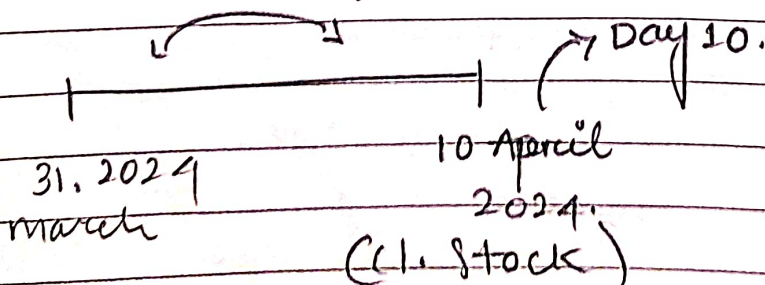 Day 10.
31. 2024
march
10 April
2024.
(Cl. Stock)